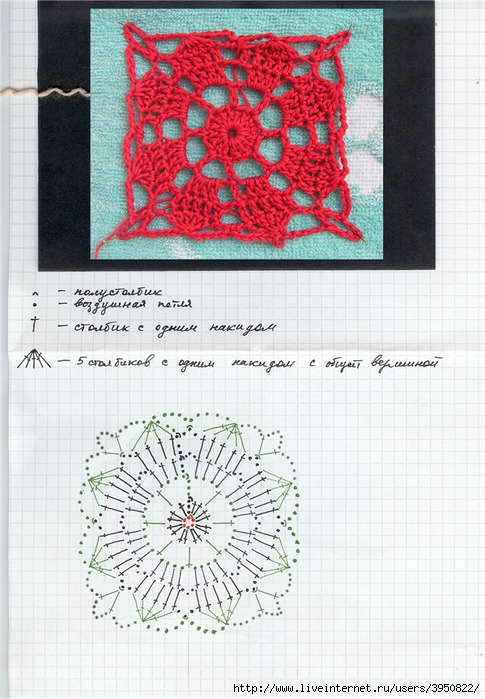 ⌢ — полустолбик
• — воздушная петля
† — столбик с одним накидом
— 5 столбиков с одним накидом с общей вершиной
http://www.liveinternet.ru/users/3950822/